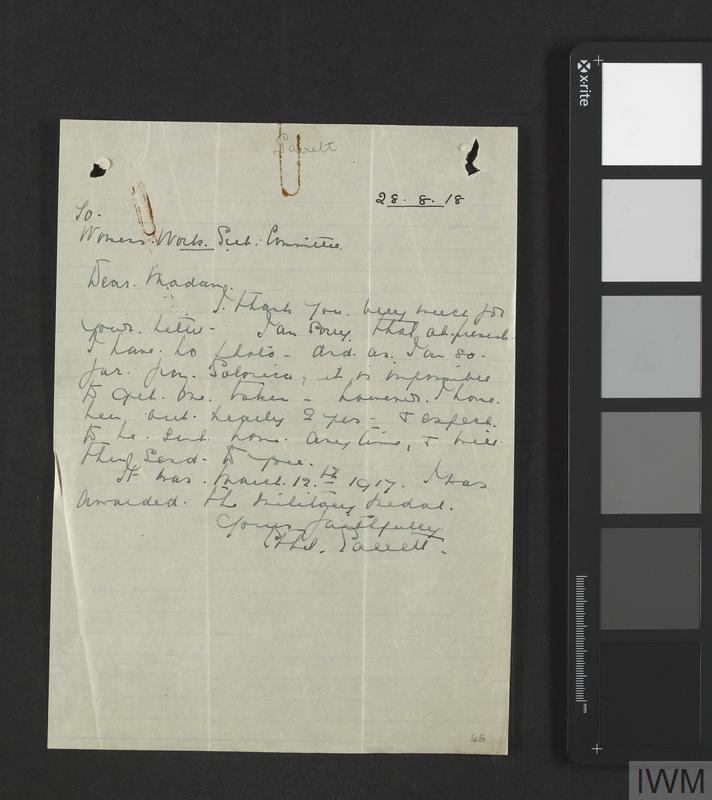 Garrett
28. 8. 18
To.
Womens Work. Sub. Committee.
Dear. Madam.
I thank you. very much for
your. letter - I am sorry. that, at. present
I have. no photo - and. as. I am so.
far. from Salonica, it is impossible
to get. one. taken - however. I have.
been. out. nearly 2 yrs - & expect.
to be. sent. home. anytime, & will.
then send. to you.
It was. March. 12.th 1917. I was
awarded. the Military Medal.
Yours faithfully
Ethel. Garrett.
46
x-rite
mm
IWM